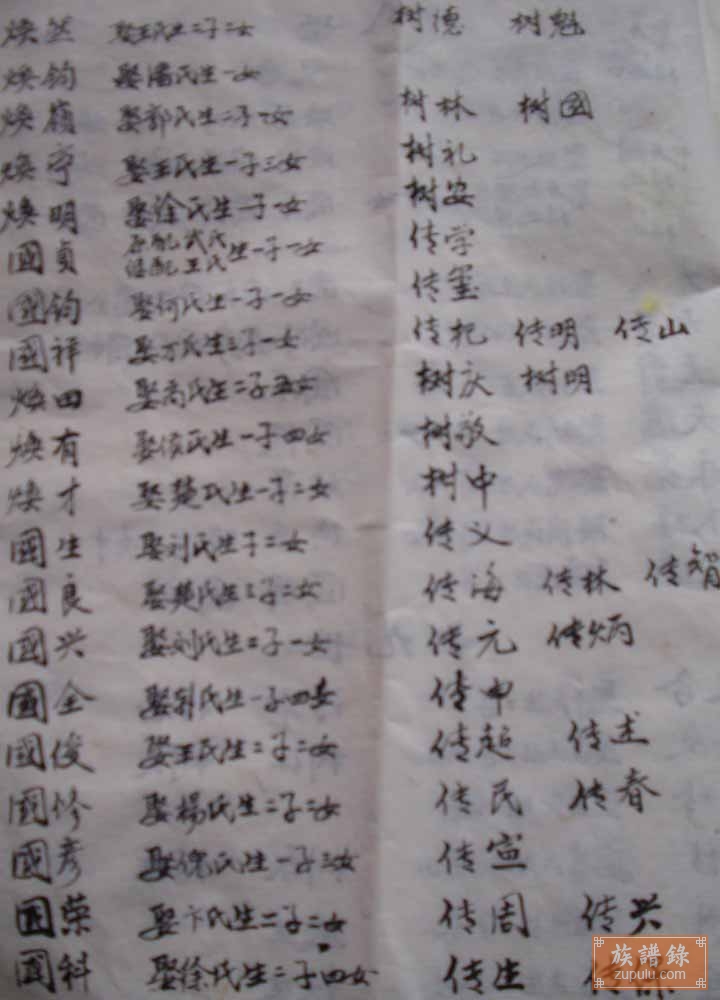 焕兰 娶王氏生二子二女 树德 树魁
焕钧 娶潘氏生一女
焕岭 娶郭氏生二子一女 树林 树国
焕亭 娶王氏生一子三女 树礼
焕明 娶徐氏生一子一女 树安
國貞 原配武氏 继配王氏 生一子一女 传学
國钧 娶何氏生一子一女 传玺
國祥 娶万氏生三子一女 传杞 传明 传山
焕田 娶高氏生二子五女 树庆 树明
焕有 娶侯氏生一子四女 树敬
焕才 娶楚氏生一子二女 树中
國生 娶刘氏生子二女 传义
國良 娶樊氏生三子二女 传海 传林 传智
國兴 娶刘氏生二子一女 传元 传炳
國全 娶郭氏生一子四女 传申
國俊 娶王氏生二子二女 传超 传述
國修 娶楊氏生二子二女 传民 传春
國彦 娶倪氏生一子三女 传宣
國荣 娶卞氏生二子二女 传周 传兴
國科 娶徐氏生二子四女 传生 传
族譜錄
zupulu.com